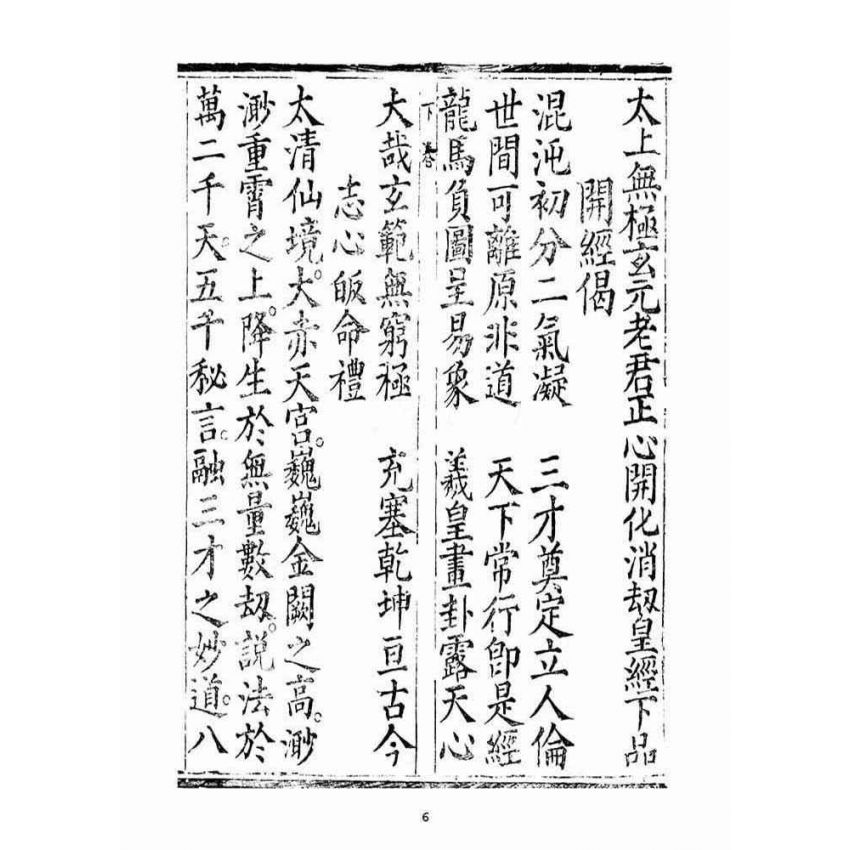 太上無極玄元老君正心開化消劫皇經下品
開經偈
混沌初分二氣凝　三才奠定立人倫
世間可離原非道　天下常行卽是經
龍馬負圖呈易象　羲皇畫卦露天心
下 卷
大哉玄範無窮極　充塞乾坤亘古今
志心皈命禮
太清仙境。大赤天宮。巍巍金闕之高。渺
渺重霄之上。降生於無量數劫。説法於
萬二千天。五千秘言。融三才之妙道。八
6